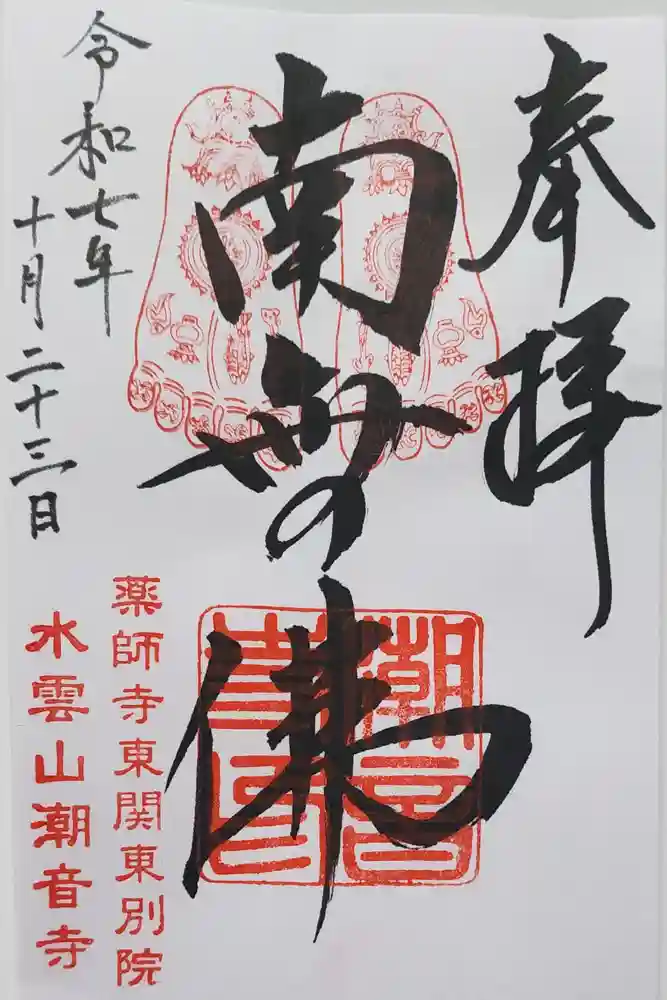 奉拝
南無佛
令和七年
十月二十三日
薬師寺東関東別院
水雲山潮音寺